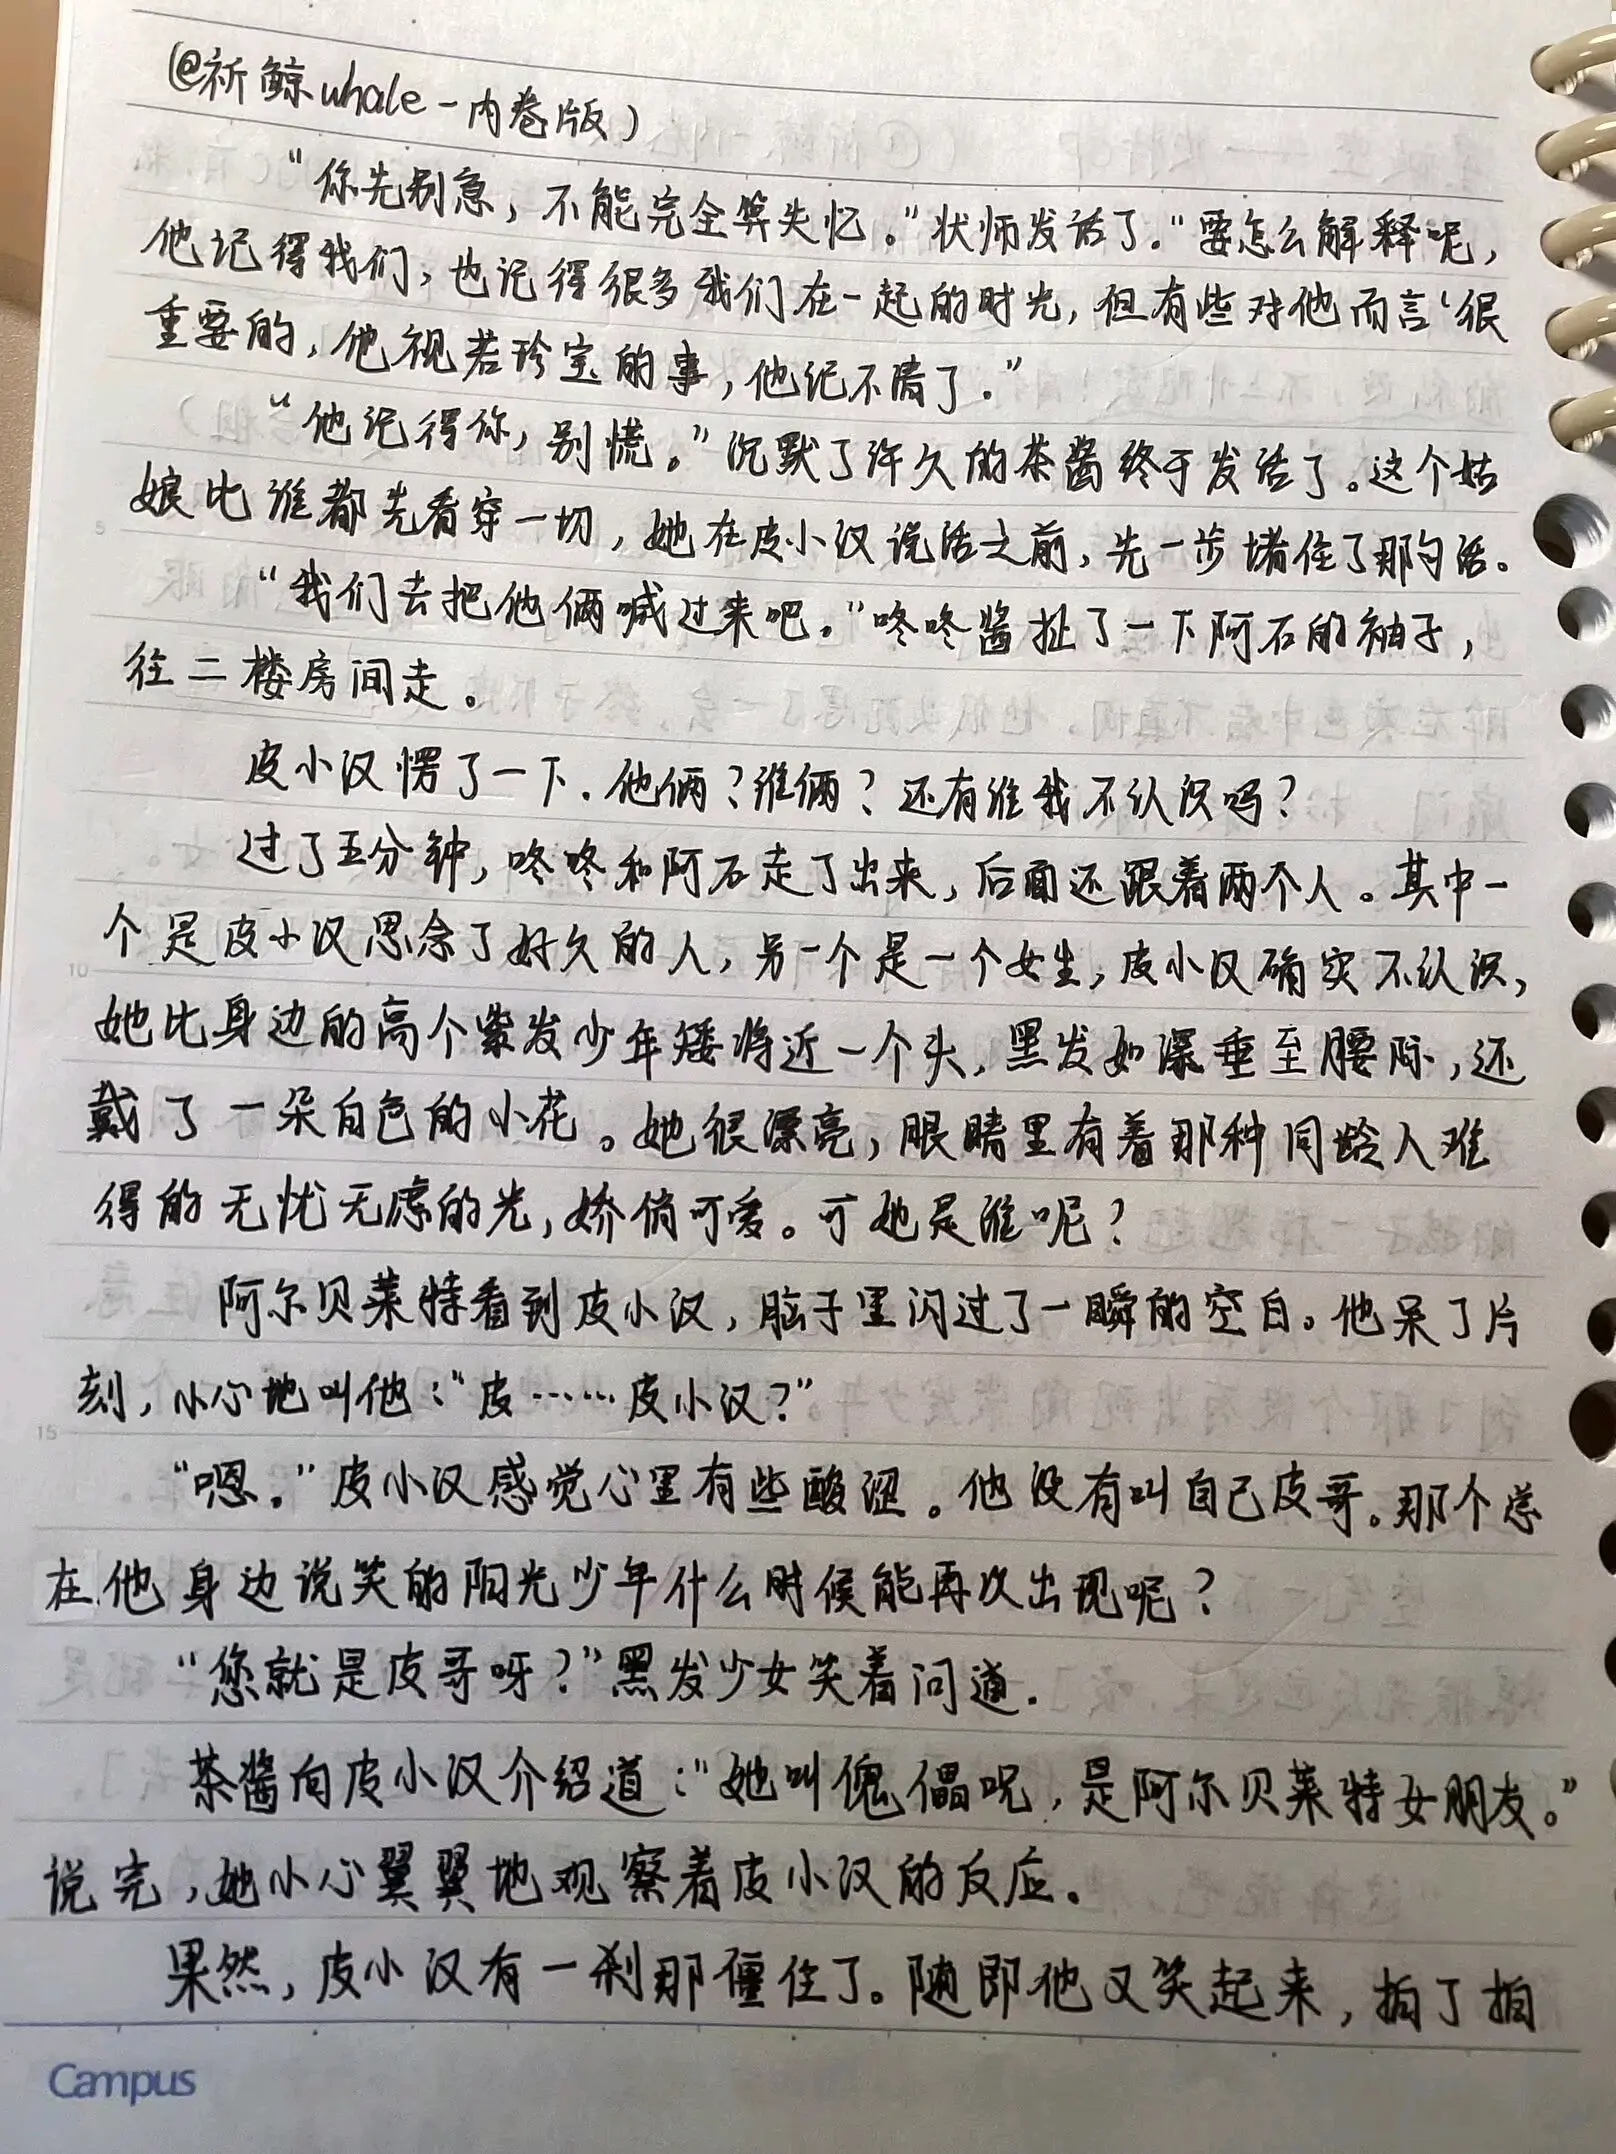 (@祈鲸whale-内卷版)
“你先别急，不能完全算失忆。”状师发话了。“要怎么解释呢，
他记得我们，也记得很多我们在一起的时光，但有些对他而言‘很
重要的，他视若珍宝的事，他记不清了。”
“他记得你，别慌。”沉默了许久的茶酱终于发话了。这个姑
娘比谁都先看穿一切，她在皮小汉说话之前，先一步堵住了那句话。
“我们去把他俩喊过来吧。”咚咚酱扯了一下阿石的袖子，
往二楼房间走。
皮小汉愣了一下．他俩？谁俩？还有谁我不认识吗？
过了五分钟，咚咚和阿石走了出来，后面还跟着两个人。其中一
个是皮小汉思念了好久的人，另一个是一个女生，皮小汉确实不认识，
她比身边的高个紫发少年矮将近一个头，黑发如瀑垂至腰际，还
戴了一朵白色的小花。她很漂亮，眼睛里有着那种同龄人难
得的无忧无虑的光，娇俏可爱。可她是谁呢？
阿尔贝莱特看到皮小汉，脑子里闪过了一瞬的空白。他呆了片
刻，小心地叫他：“皮……皮小汉？”
“嗯。”皮小汉感觉心里有些酸涩。他没有叫自己皮哥。那个总
在他身边说笑的阳光少年什么时候能再次出现呢？
“您就是皮哥呀？”黑发少女笑着问道．
茶酱向皮小汉介绍道：“她叫傀儡呪，是阿尔贝莱特女朋友。”
说完，她小心翼翼地观察着皮小汉的反应。
果然，皮小汉有一刹那僵住了。随即他又笑起来，拍了拍
5
10
15
Campus